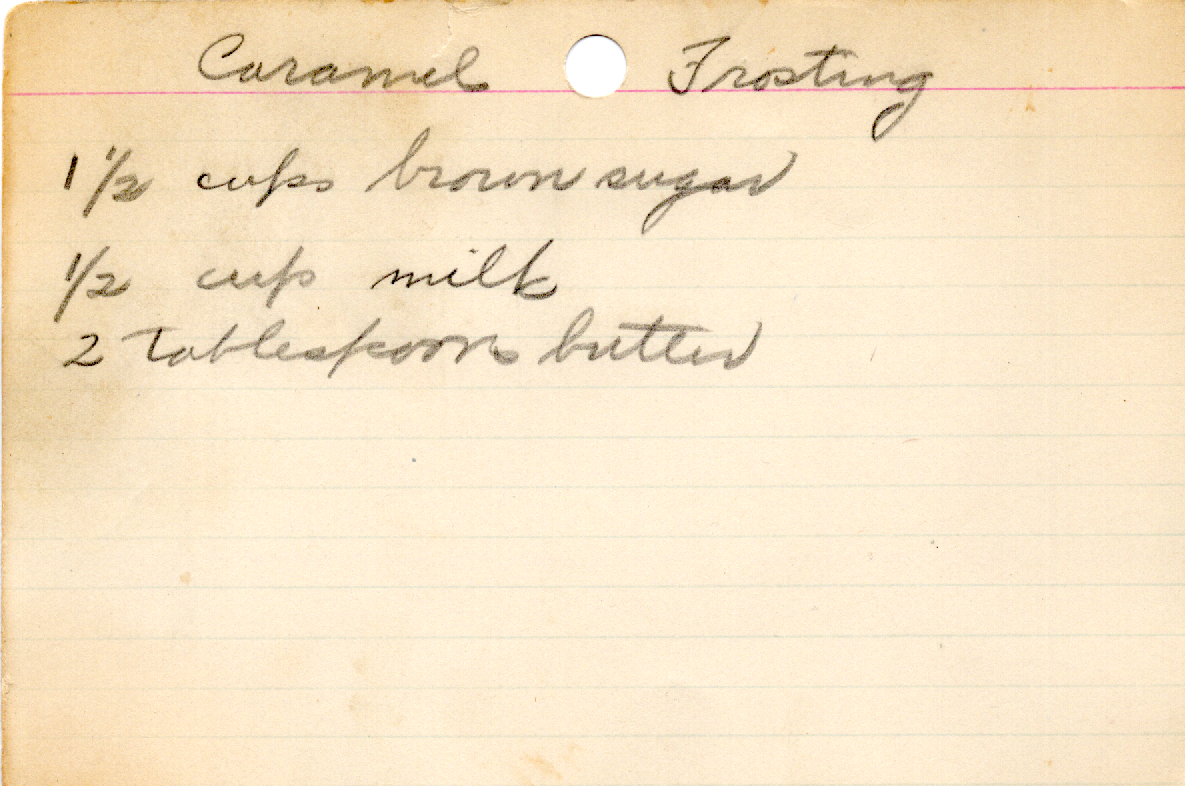 Caramel Frosting
1 1/2 cups brown sugar
1/2 cup milk
2 Tablespoons butter